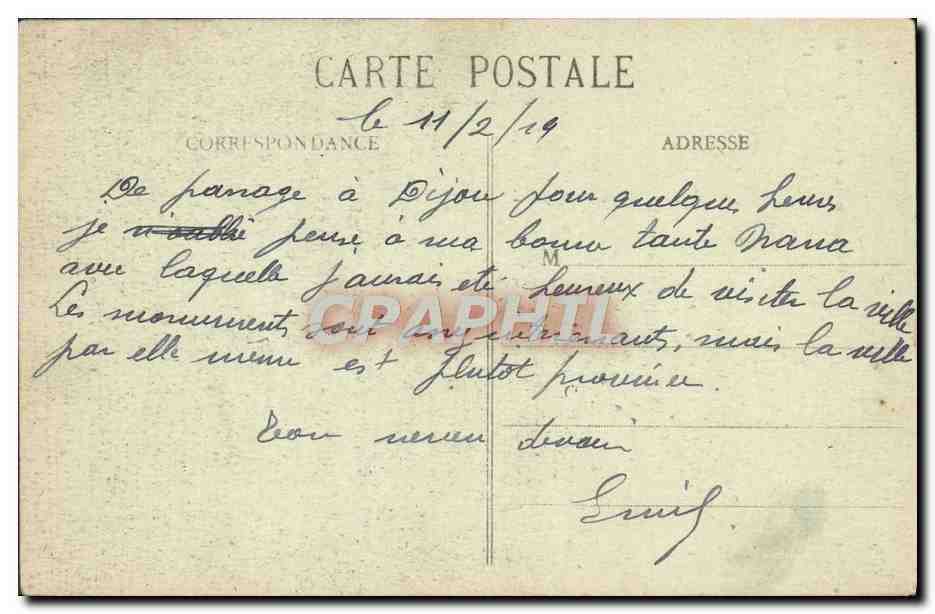 CARTE POSTALE
le 11/2/19
CORRESPONDANCE
ADRESSE
De passage à Dijon pour quelques heures
je n'oublie pense à ma bonne tante Nana
M
avec laquelle j'aurais été heureux de visiter la ville
Les monuments sont assez intéressants, mais la ville
par elle même est plutot province.
Ton neveu
Emile
CPAPHIL